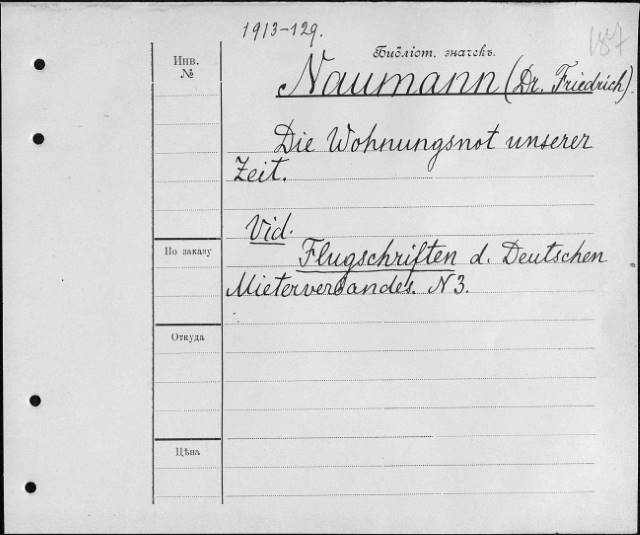 1913-129.
187
Инв.
№
Библіот. значекъ.
Naumann (Dr. Friedrich).
Die Wohnungsnot unserer
Zeit.
Vid.
По заказу
Flugschriften d. Deutschen
Mieterverbandes. N 3.
Откуда
Цѣна